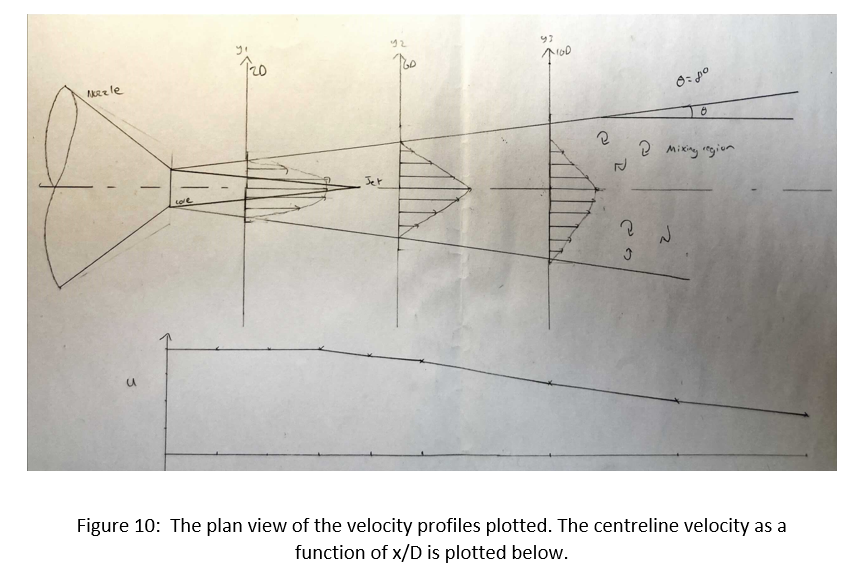 y1
2D
y2
6D
y3
10D
Nozzle
θ=8°
θ
Mixing region
Jet
core
u
Figure 10: The plan view of the velocity profiles plotted. The centreline velocity as a
function of x/D is plotted below.